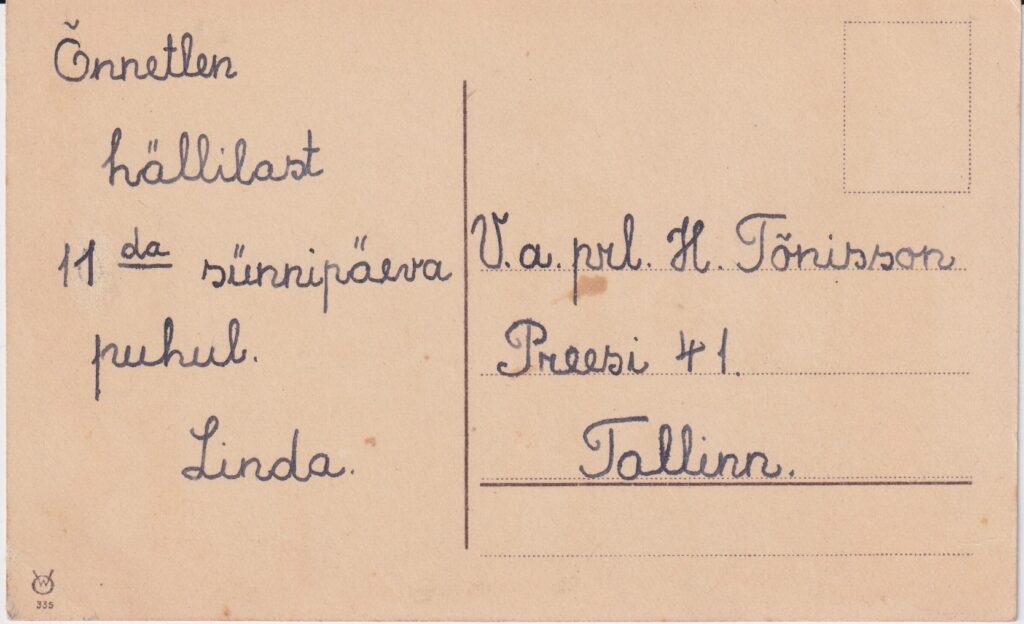 Õnnetlen
hällilast
11 da sünnipäeva
puhul.
Linda.
V. a. prl. H. Tõnisson
Preesi 41.
Tallinn.
W
335